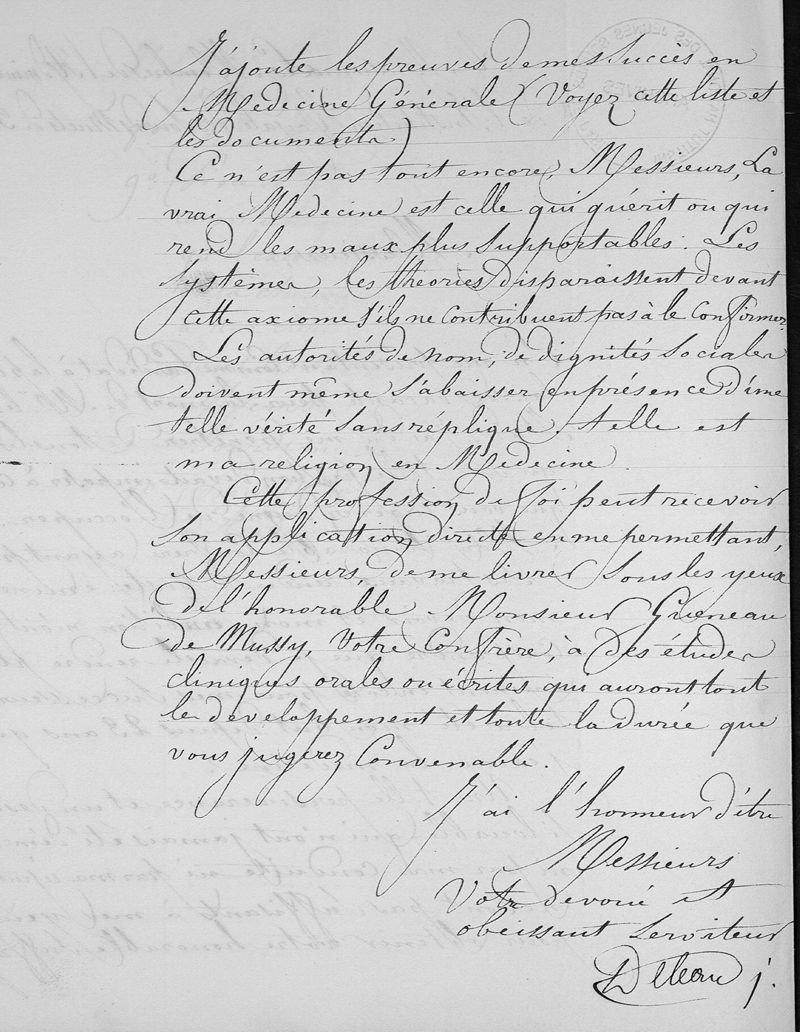 J'ajoute les preuves de mes succès en
Medecine Générale (Voyez cette liste et
les documents)
Ce n'est pas tout encore, Messieurs, La
vrai Medecine est celle qui guérit ou qui
rend les maux plus supportables. Les
Systèmes, les théories disparaissent devant
cette axiome s'ils ne contribuent pas à le confirmer.
Les autorités de nom, de dignités sociales
doivent même s'abaisser en présence d'une
telle vérité sans réplique. telle est
ma religion en Medecine.
Cette profession de foi peut recevoir
son application directe en me permettant,
Messieurs, de me livrer sous les yeux
de l'honorable Monsieur Gueneau
de Mussy, votre Confrère, à des études
cliniques orales ou écrites qui auront tout
le developpement et toute la durée que
vous jugerez Convenable.
J'ai l'honneur d'être
Messieurs
Votre devoué et
obeissant Serviteur
Deleau j.